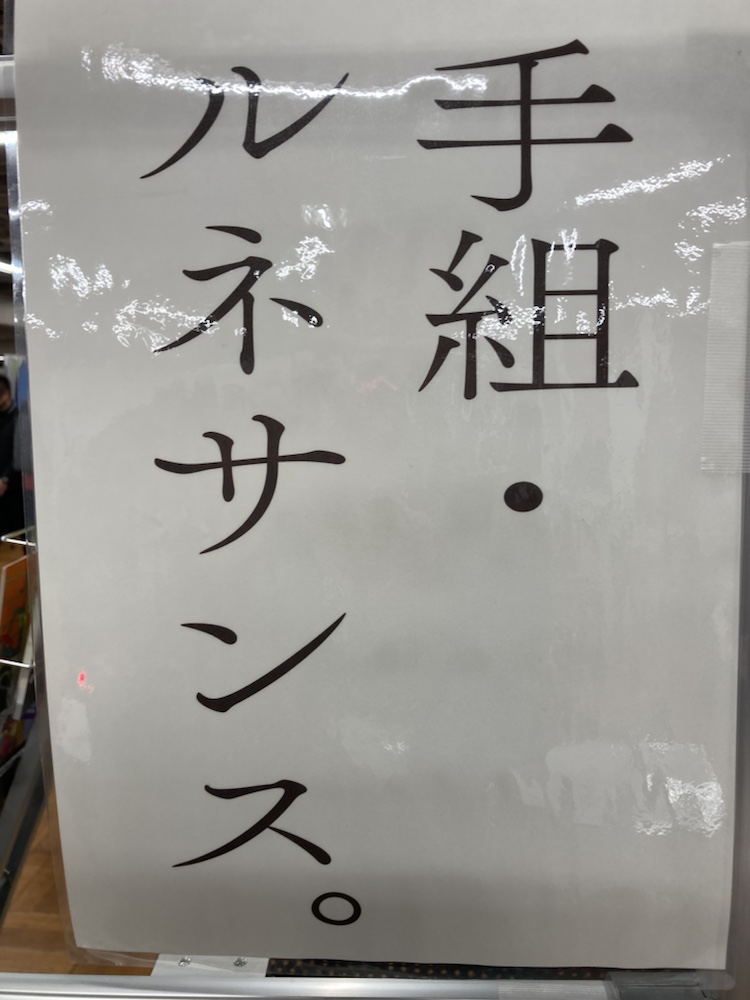 手組・
ルネサンス。